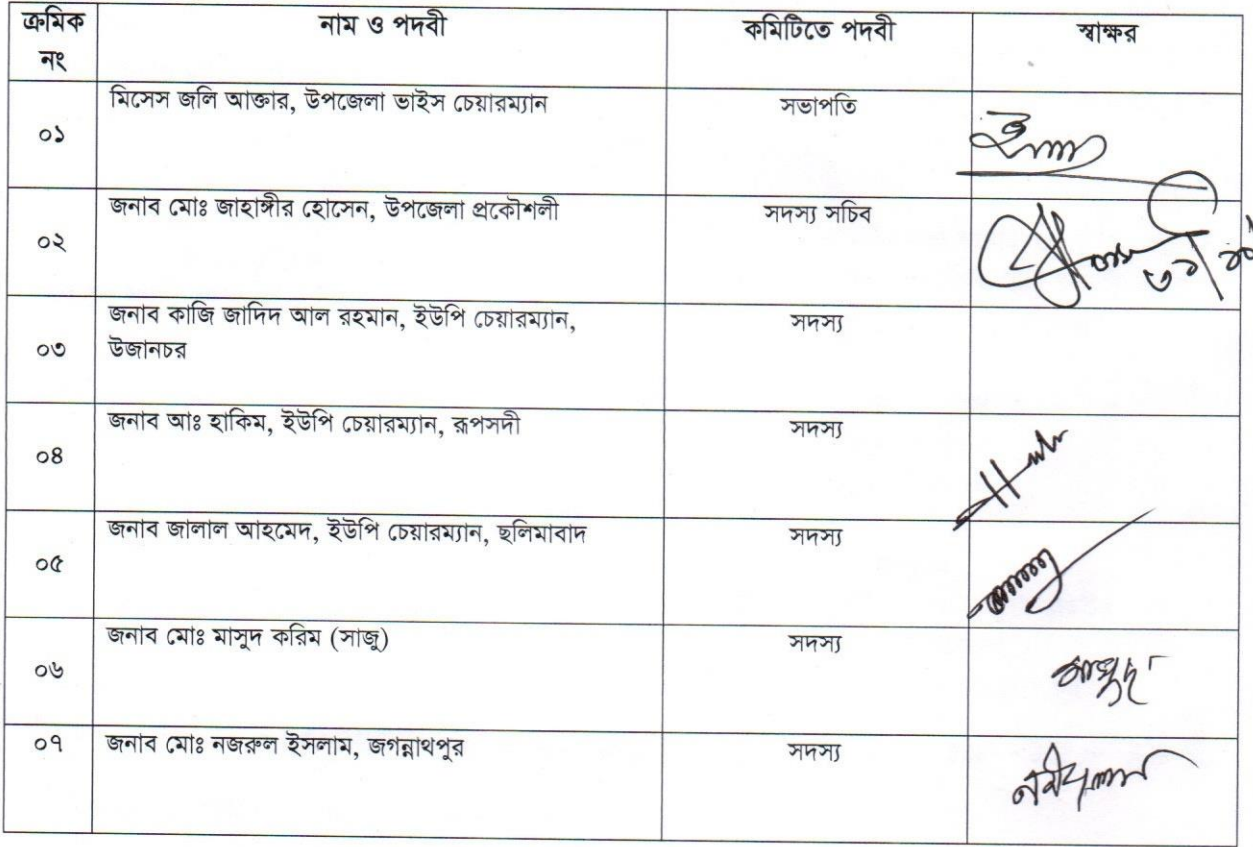 ক্রমিক নং নাম ও পদবী কমিটিতে পদবী স্বাক্ষর
০১ মিসেস জলি আক্তার, উপজেলা ভাইস চেয়ারম্যান সভাপতি
০২ জনাব মোঃ জাহাঙ্গীর হোসেন, উপজেলা প্রকৌশলী সদস্য সচিব
০৩ জনাব কাজি জাদিদ আল রহমান, ইউপি চেয়ারম্যান, সদস্য
উজানচর
০৪ জনাব আঃ হাকিম, ইউপি চেয়ারম্যান, রূপসদী সদস্য
০৫ জনাব জালাল আহমেদ, ইউপি চেয়ারম্যান, ছলিমাবাদ সদস্য
০৬ জনাব মোঃ মাসুদ করিম (সাজু) সদস্য
০৭ জনাব মোঃ নজরুল ইসলাম, জগন্নাথপুর সদস্য